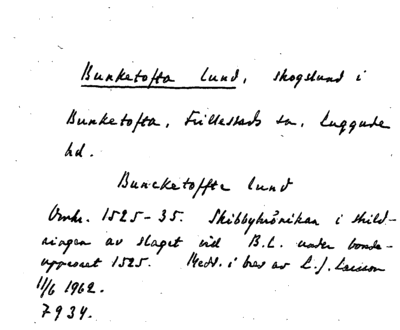 Bunketofta lund, skogslund i
Bunketofta, Fillestads sn, Luggude
hd.
Buncketoffte lund
Omkr. 1525-35. Skibbykrönikan i skild-
ringen av slaget vid B.L. under bonde-
upproret 1525. Medd. i brev av L.J. Larsson
11/6 1962.
7934.